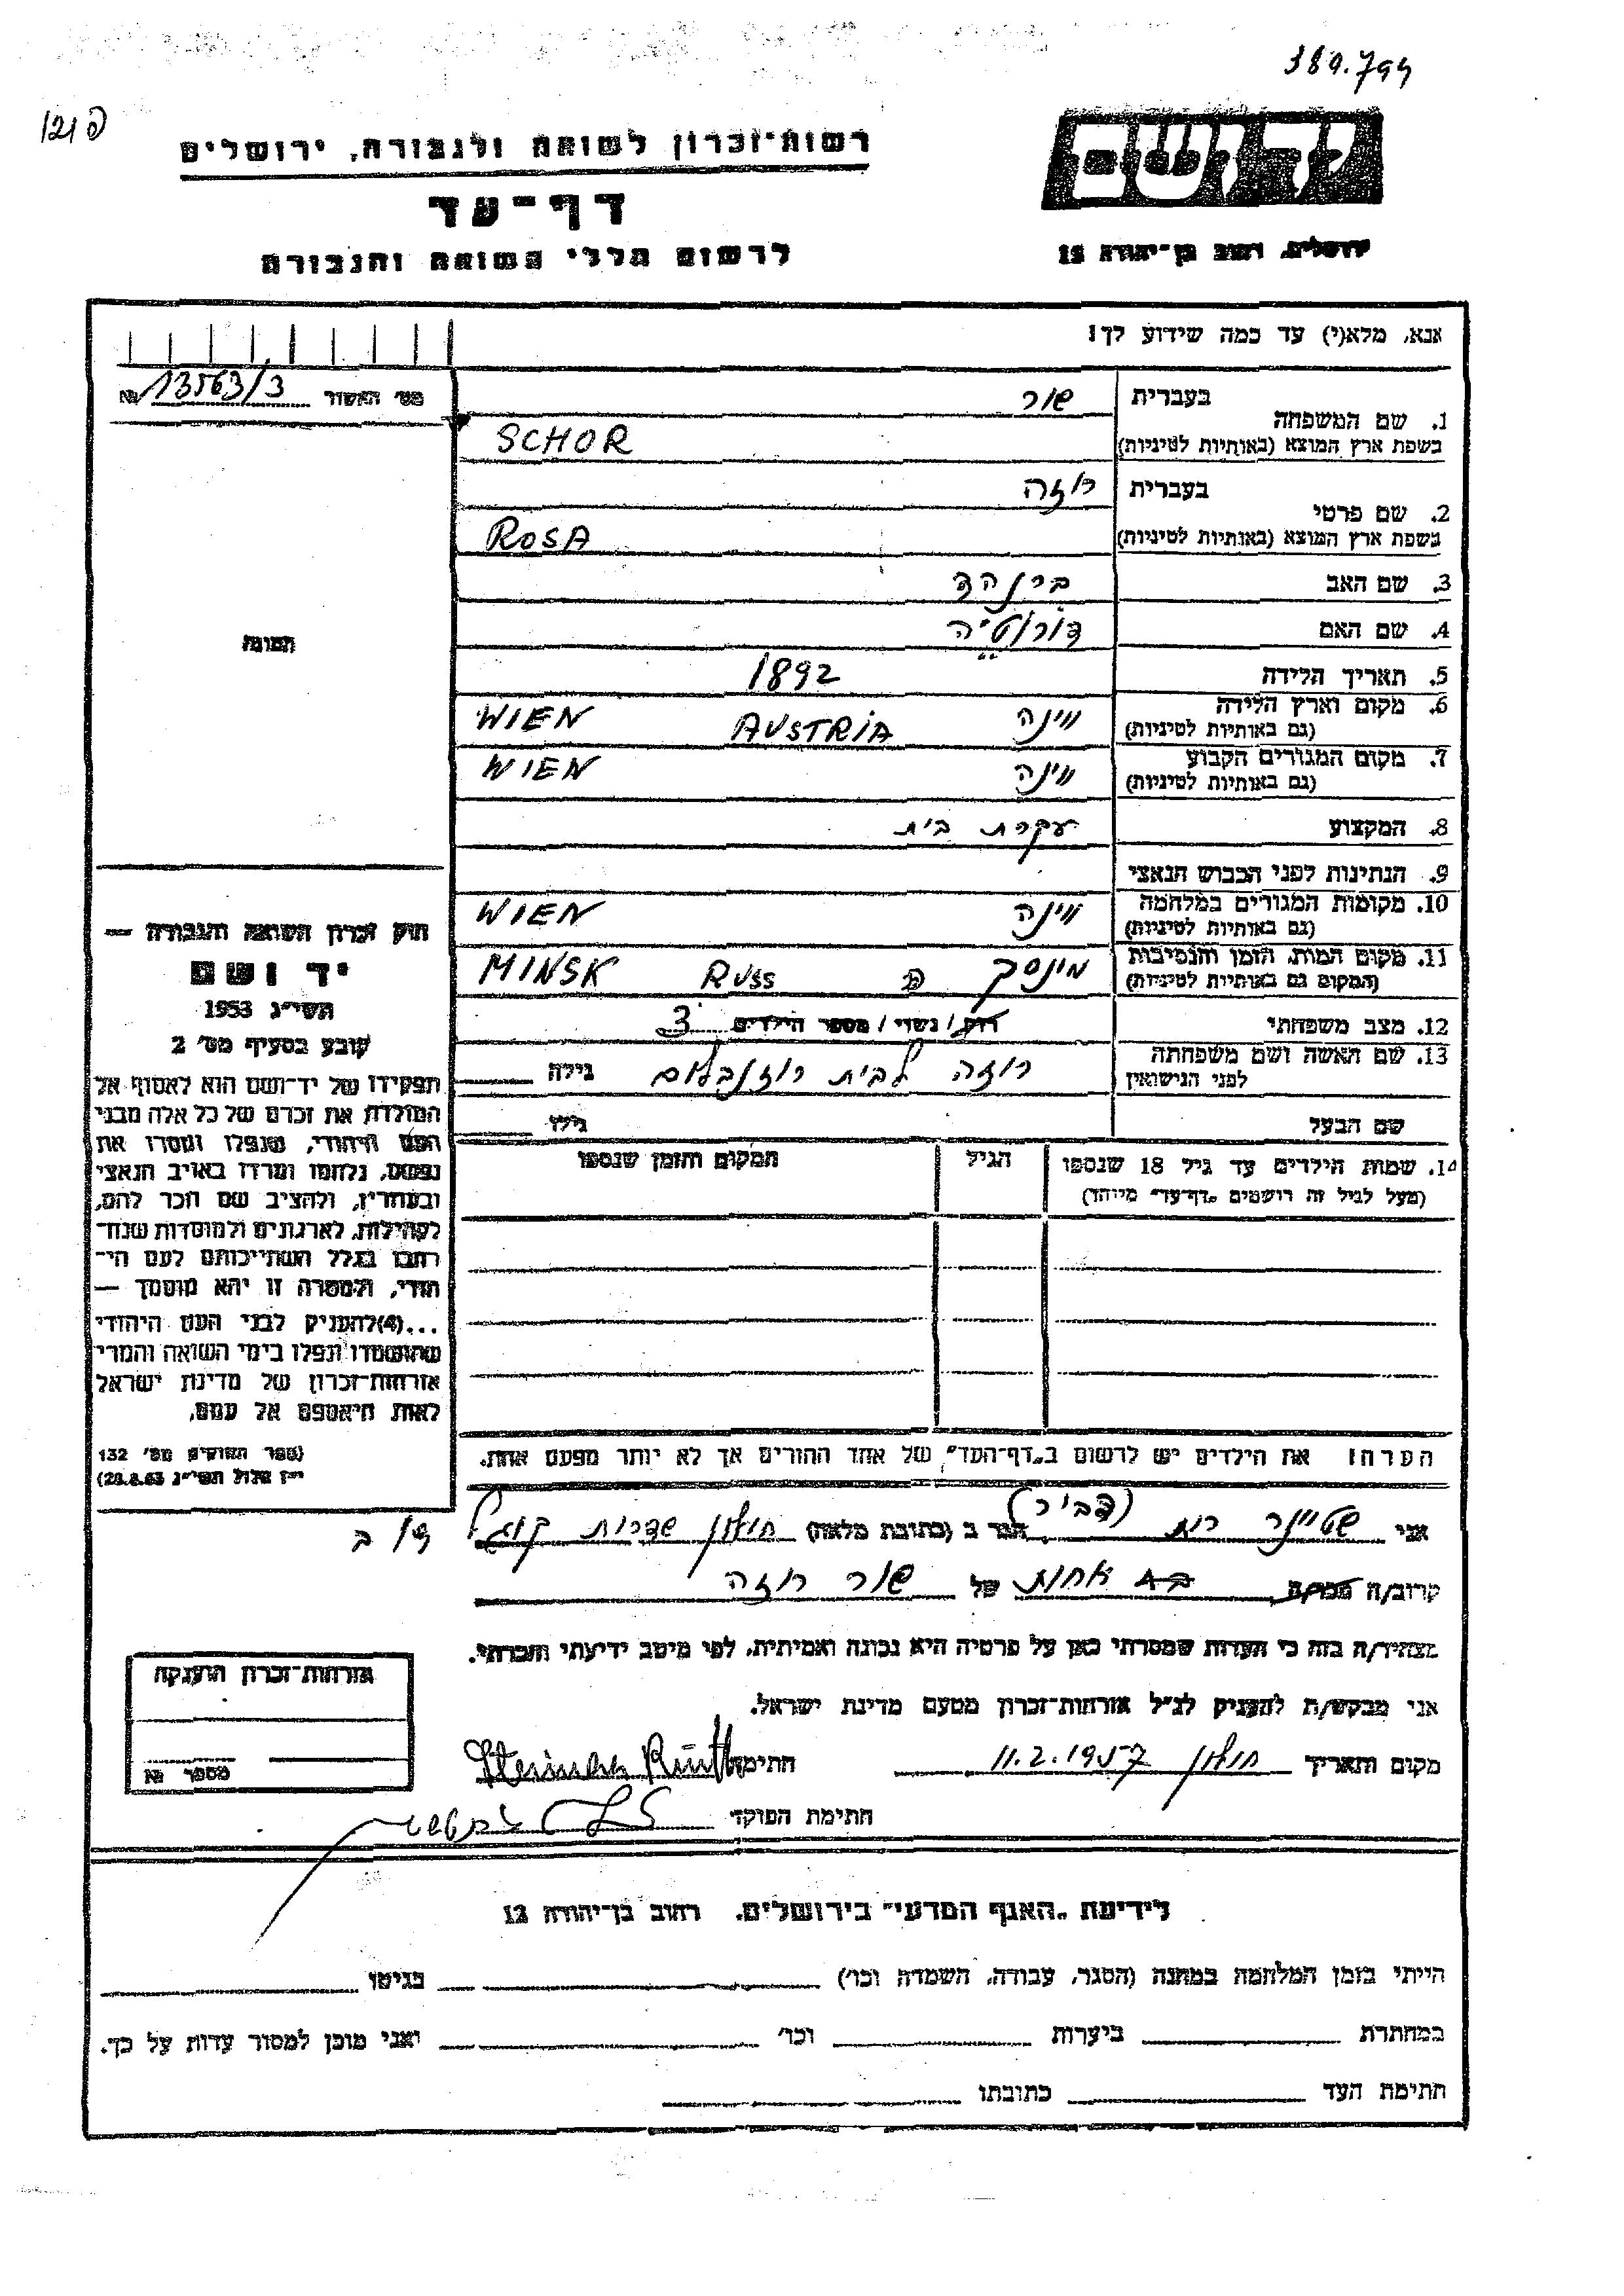 389.794
רשות־זכרון לשואה ולגבורה, ירושלים
דף־עד
לרשום חללי השואה והגבורה
ירושלים, רחוב בן־יהודה 12
אנא, מלא(י) עד כמה שידוע לך!
מס׳ האשור 13563/3 №
בעברית שור
1. שם המשפחה
בשפת ארץ המוצא (באותיות לטיניות) SCHOR
בעברית רוזה
2. שם פרטי
בשפת ארץ המוצא (באותיות לטיניות) ROSA
3. שם האב ברנהד
4. שם האם דורוטיה
5. תאריך הלידה 1892
6. מקום וארץ הלידה וינה AUSTRIA WIEN
(גם באותיות לטיניות)
7. מקום המגורים הקבוע וינה WIEN
(גם באותיות לטיניות)
8. המקצוע עקרת בית
9. הנתינות לפני הכבוש הנאצי
10. מקומות המגורים במלחמה וינה WIEN
(גם באותיות לטיניות)
11. מקום המות, הזמן והנסיבות מינסק RUSS MINSK
(המקום גם באותיות לטיניות)
12. מצב משפחתי רווק / נשוי / מספר הילדים 3
13. שם האשה ושם משפחתה רוזה לבית רוזנבלום גילה
לפני הנישואין
שם הבעל גילו
14. שמות הילדים עד גיל 18 שנספו הגיל המקום והזמן שנספו
(מעל לגיל זה רושמים „דף־עד” מיוחד)
הערה: את הילדים יש לרשום ב„דף־העד” של אחד ההורים אך לא יותר מפעם אחת.
התמונה
חוק זכרון השואה והגבורה —
יד ושם
תשי״ג 1953
קובע בסעיף מס׳ 2
תפקידו של יד־ושם הוא לאסוף אל
המולדת את זכרם של כל אלה מבני
העם היהודי, שנפלו ומסרו את
נפשם, נלחמו ומרדו באויב הנאצי
ובעוזריו, ולהציב שם וזכר להם,
לקהילות, לארגונים ולמוסדות שנח־
רבו בגלל השתייכותם לעם היה־
הודי, ולמטרה זו יהא מוסמך —
...(4) להעניק לבני העם היהודי
שהושמדו ונפלו בימי השואה והמרי
אזרחות־זכרון של מדינת ישראל
לאות היאספם אל עמם.
(ספר החוקים מס׳ 132
י״ז אלול תשי״ג 28.8.53)
אני שטיינר רות (דביר) הגר ב (כתובת מלאה) חולון שדרות קוגל
קרוב/ה מכר/ה בת אחות של שור רוזה
מצהיר/ה בזה כי העדות שמסרתי כאן על פרטיה היא נכונה ואמיתית, לפי מיטב ידיעתי והכרתי.
אני מבקש/ת להעניק לנ״ל אזרחות־זכרון מטעם מדינת ישראל.
מקום ותאריך חולון 11.2.1957 חתימה
חתימת הפוקד
אזרחות־זכרון הוענקה
מספר №
לידיעת „האגף המדעי” בירושלים, רחוב בן־יהודה 12
הייתי בזמן המלחמה במחנה (הסגר, עבודה, השמדה וכו׳) בגיטו
במחתרת ביערות וכו׳ ואני מוכן למסור עדות על כך.
חתימת העד כתובתו